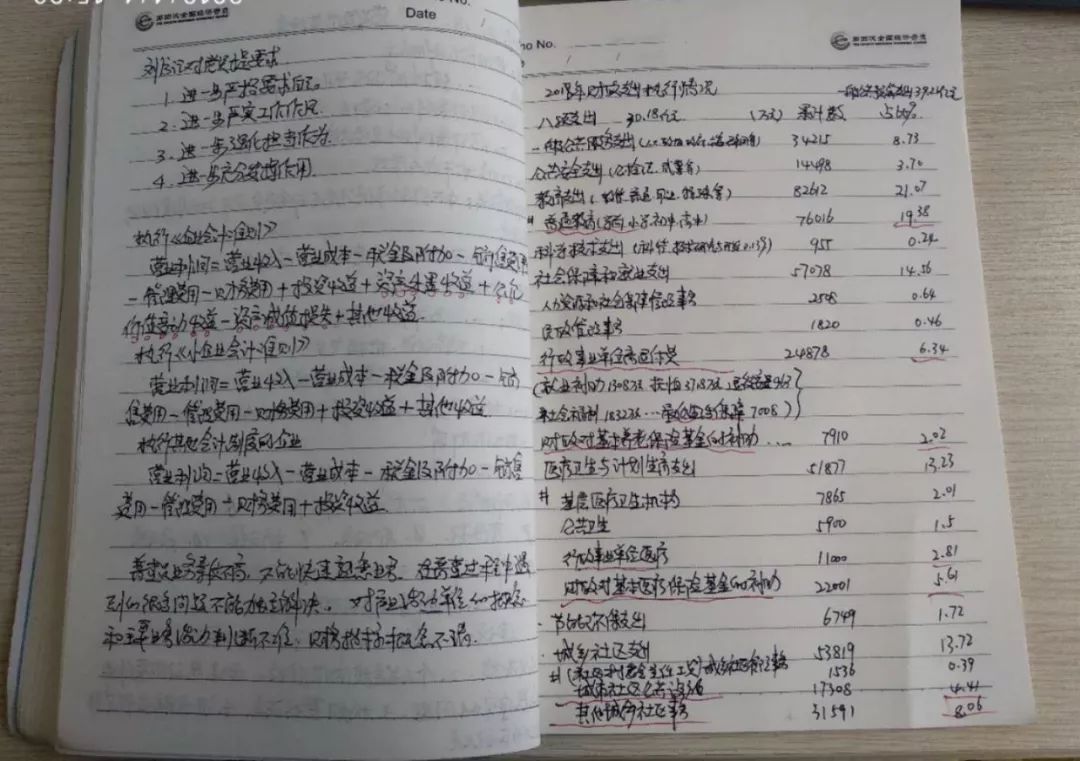 Date
第四次全国经济普查
刘书记对党员提要求
1. 进一步严格要求自己。
2. 进一步严实工作作风
3. 进一步强化担当作为.
4. 进一步充分发挥作用.
执行《企业会计准则》
营业利润=营业收入-营业成本-税金及附加-销售费用
-管理费用-财务费用+投资收益+资产处置收益+公允
价值变动收益-资产减值损失+其他收益.
执行《小企业会计准则》
营业利润=营业收入-营业成本-税金及附加-销
售费用-管理费用-财务费用+投资收益+其他收益.
执行其他会计制度的企业
营业利润=营业收入-营业成本-税金及附加-销售
费用-管理费用-财务费用+投资收益
普查业务素质不高,不能快速熟悉业务,在普查过程中遇
到的很多问题不能独立解决。对产业活动单位的概念
和主要业务活动判断不准,财务指标概念不清。
No.
第四次全国经济普查
2018年财政支出执行情况 一般公共预算支出39.2亿元
八项支出 30.18亿元 (万元) 累计数
一般公共服务支出 34215 8.73
公共安全支出 14498 3.70
教育支出 82612 21.07
# 普通教育(学前 小学 初中 高中) 76016 19.38
科学技术支出 955 0.24
社会保障和就业支出 57078 14.56
人力资源和社会保障管理事务 2508 0.64
民政管理事务 1820 0.46
行政事业单位离退休费 24878 6.34
财政对基本养老保险基金的补助... 7910 2.02
医疗卫生与计划生育支出 51877 13.23
# 基层医疗卫生机构 7865 2.01
公共卫生 5900 1.5
行政事业单位医疗 11000 2.81
财政对基本医疗保险基金的补助 22001 5.61
节能环保支出 6749 1.72
城乡社区支出 53819 13.72
1536 0.39
城乡社区公共设施 17308 4.41
其他城乡社区事务 31591 8.06